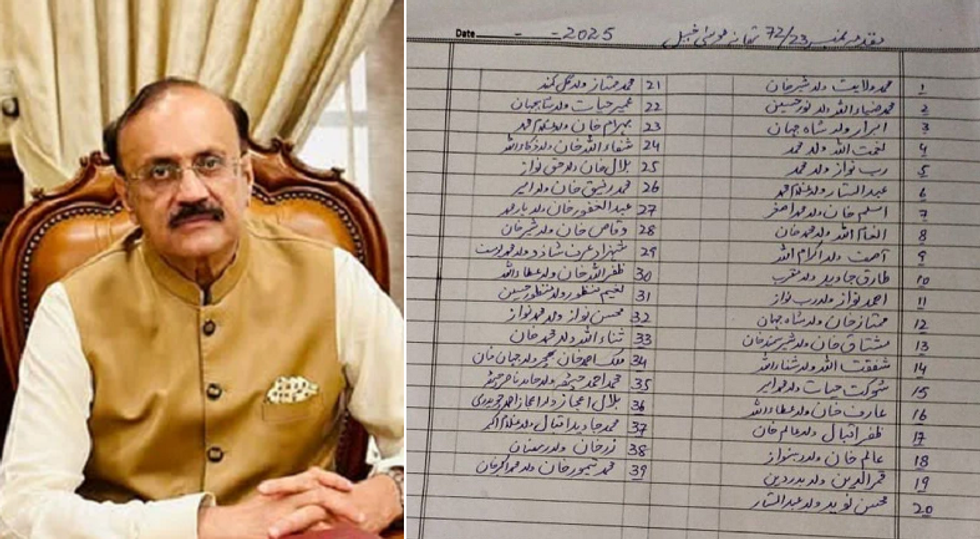 Date - - 2025 مقدمہ نمبر 72/23 تھانہ موسیٰ خیل
1 محمد ولایت ولد شیر خان
2 محمد ضیاء اللہ ولد نور حسین
3 ابرار ولد شاہ جہان
4 نعمت اللہ ولد محمد
5 رب نواز ولد محمد
6 عبدالستار ولد غلام محمد
7 اسلم خان ولد محمد اصغر
8 انعام اللہ ولد محمد خان
9 آصف ولد اکرام اللہ
10 طارق جاوید ولد
11 احمد نواز ولد رب نواز
12 ممتاز خان ولد شاہ جہان
13 مشتاق خان ولد شیر
14 شفقت اللہ ولد ثناء اللہ
15 شوکت حیات ولد محمد امیر
16 عارف خان ولد عطاء اللہ
17 ظفر اقبال ولد عالم خان
18 عالم خان ولد ربنواز
19 قمرالدین ولد بدردین
20 محسن نوید ولد عبدالستار
21 محمد ممتاز ولد
22 عمیر حیات ولد شاہجہان
23 بہرام خان ولد غلام محمد
24 شفاء اللہ خان ولد ذکاء اللہ
25 بلال خان ولد حق نواز
26 محمد رفیق خان ولد امیر
27 عبدالغفور خان ولد یار محمد
28 وقاص خان ولد شیر خان
29 شہزاد عرف ولد
30 ظفر اللہ خان ولد عطاء اللہ
31 نعیم منظور ولد منظور حسین
32 محسن نواز ولد محمد نواز
33 ثناء اللہ ولد محمد خان
34 ملک احمد خان بھچر ولد جہان خان
35 محمد احمد چٹھہ ولد حامد ناصر چٹھہ
36 بلال اعجاز ولد اعجاز احمد چوہدری
37 محمد جاوید اقبال ولد غلام اکبر
38 زر خان ولد رمضان
39 محمد تیمور خان ولد محمد اکبر خان